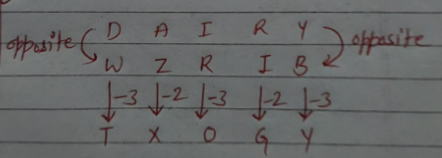 D A I R Y
opposite opposite
W Z R I B
-3 -2 -3 -2 -3
T X O G Y